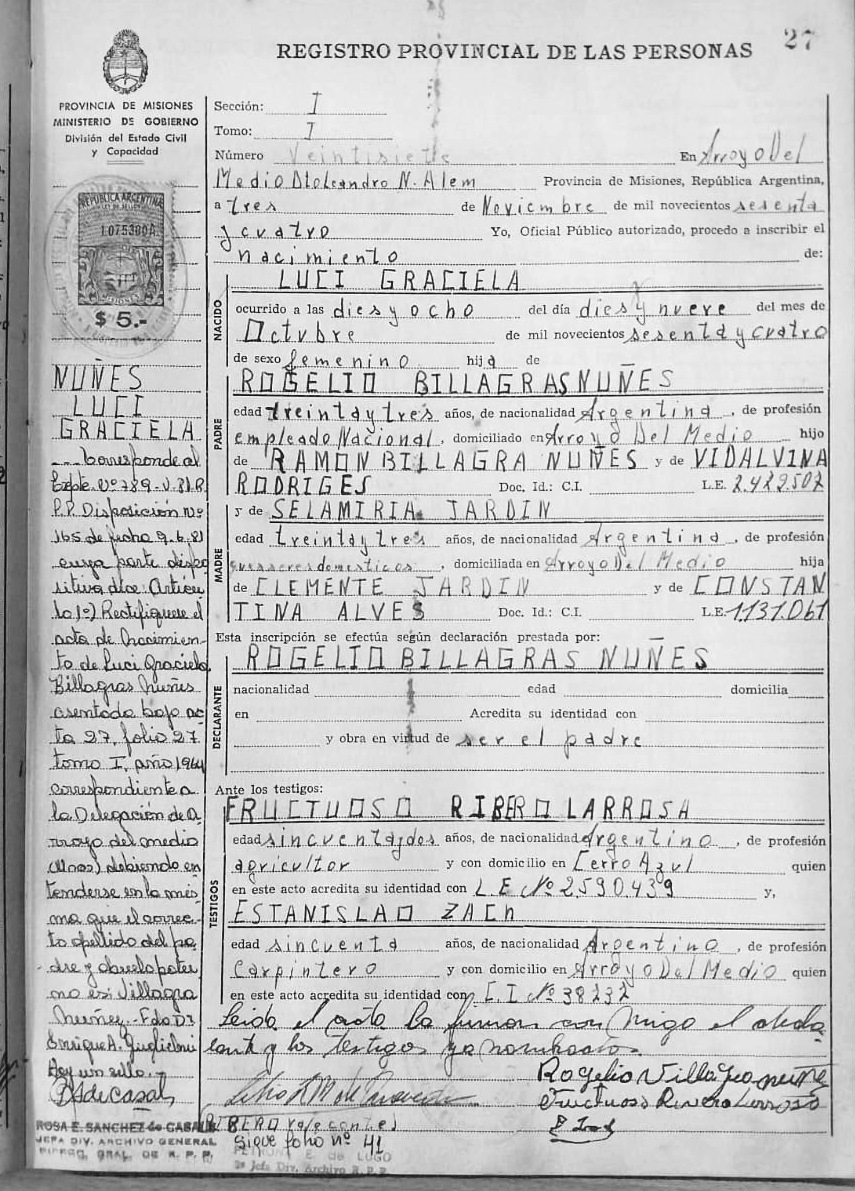 27
REGISTRO PROVINCIAL DE LAS PERSONAS
PROVINCIA DE MISIONES
MINISTERIO DE GOBIERNO
División del Estado Civil
y Capacidad
REPUBLICA ARGENTINA
1.075300A
$ 5.-
NUÑES
LUCI
GRACIELA
Corresponde al
Expte. Nº 789-V-81 R.
P.P. Disposición Nº
165 de fecha 9.6.81
cuya parte dispo
sitiva dice: Artícu
lo 1º) Rectifíquese el
acta de Nacimien-
to de Luci Graciela
Billagras Nuñes
asentada bajo ac
ta 27, folio 27
tomo I, año 1964
correspondiente a
la Delegación de A
rroyo del medio
(Mnes) debiendo en
tenderse en la mis
ma que el correc-
to apellido del pa
dre y abuelo pater
no es: Villagra
Nuñez - Fdo Dr
Enrique A. Guglielmi
Hay un sello.-
RS de Casal
ROSA E. SANCHEZ de CASAL
JEFA DIV. ARCHIVO GENERAL
DIREC. GRAL. DE R. P. P.
Sección: I
Tomo: I
Número Veintisiete En Arroyo Del
Medio Dto Leandro N. Alem Provincia de Misiones, República Argentina,
a tres de Noviembre de mil novecientos sesenta
y cuatro Yo, Oficial Público autorizado, procedo a inscribir el
nacimiento de:
NACIDO
LUCI GRACIELA
ocurrido a las dies y ocho del día dies y nueve del mes de
Octubre de mil novecientos sesenta y cuatro
de sexo femenino hija de
PADRE
ROGELIO BILLAGRAS NUÑES
edad treinta y tres años, de nacionalidad Argentina, de profesión
empleado Nacional, domiciliado en Arroyo Del Medio hijo
de RAMON BILLAGRA NUÑES y de VIDALVINA
RODRIGES Doc. Id.: C.I. L.E. 2.422.502
MADRE
y de SELAMIRIA JARDIN
edad treinta y tres años, de nacionalidad Argentina, de profesión
domesticos, domiciliada en Arroyo Del Medio hija
de CLEMENTE JARDIN y de CONSTAN
TINA ALVES Doc. Id.: C.I. L.E. 1.131.061
Esta inscripción se efectúa según declaración prestada por:
DECLARANTE
ROGELIO BILLAGRAS NUÑES
nacionalidad edad domicilia
en Acredita su identidad con
y obra en virtud de ser el padre
Ante los testigos:
TESTIGOS
FRUCTUOSO RIBERO LARROSA
edad sincuenta y dos años, de nacionalidad Argentino, de profesión
agricultor y con domicilio en Cerro Azul quien
en este acto acredita su identidad con L.E Nº 2590.439 y,
ESTANISLAO ZACH
edad sincuenta años, de nacionalidad Argentino, de profesión
Carpintero y con domicilio en Arroyo Del Medio quien
en este acto acredita su identidad con C.I Nº 38232
Leida el acta la firman con migo el decla
rante y los testigos ya nombrados.
Rogelio Villagra nuñe
Fructuoso Rivero Larrosa
E Zach
RIBERO vale
Sigue folio nº 41
E. de LUGO
Jefa Div. Archivo R. P. P.